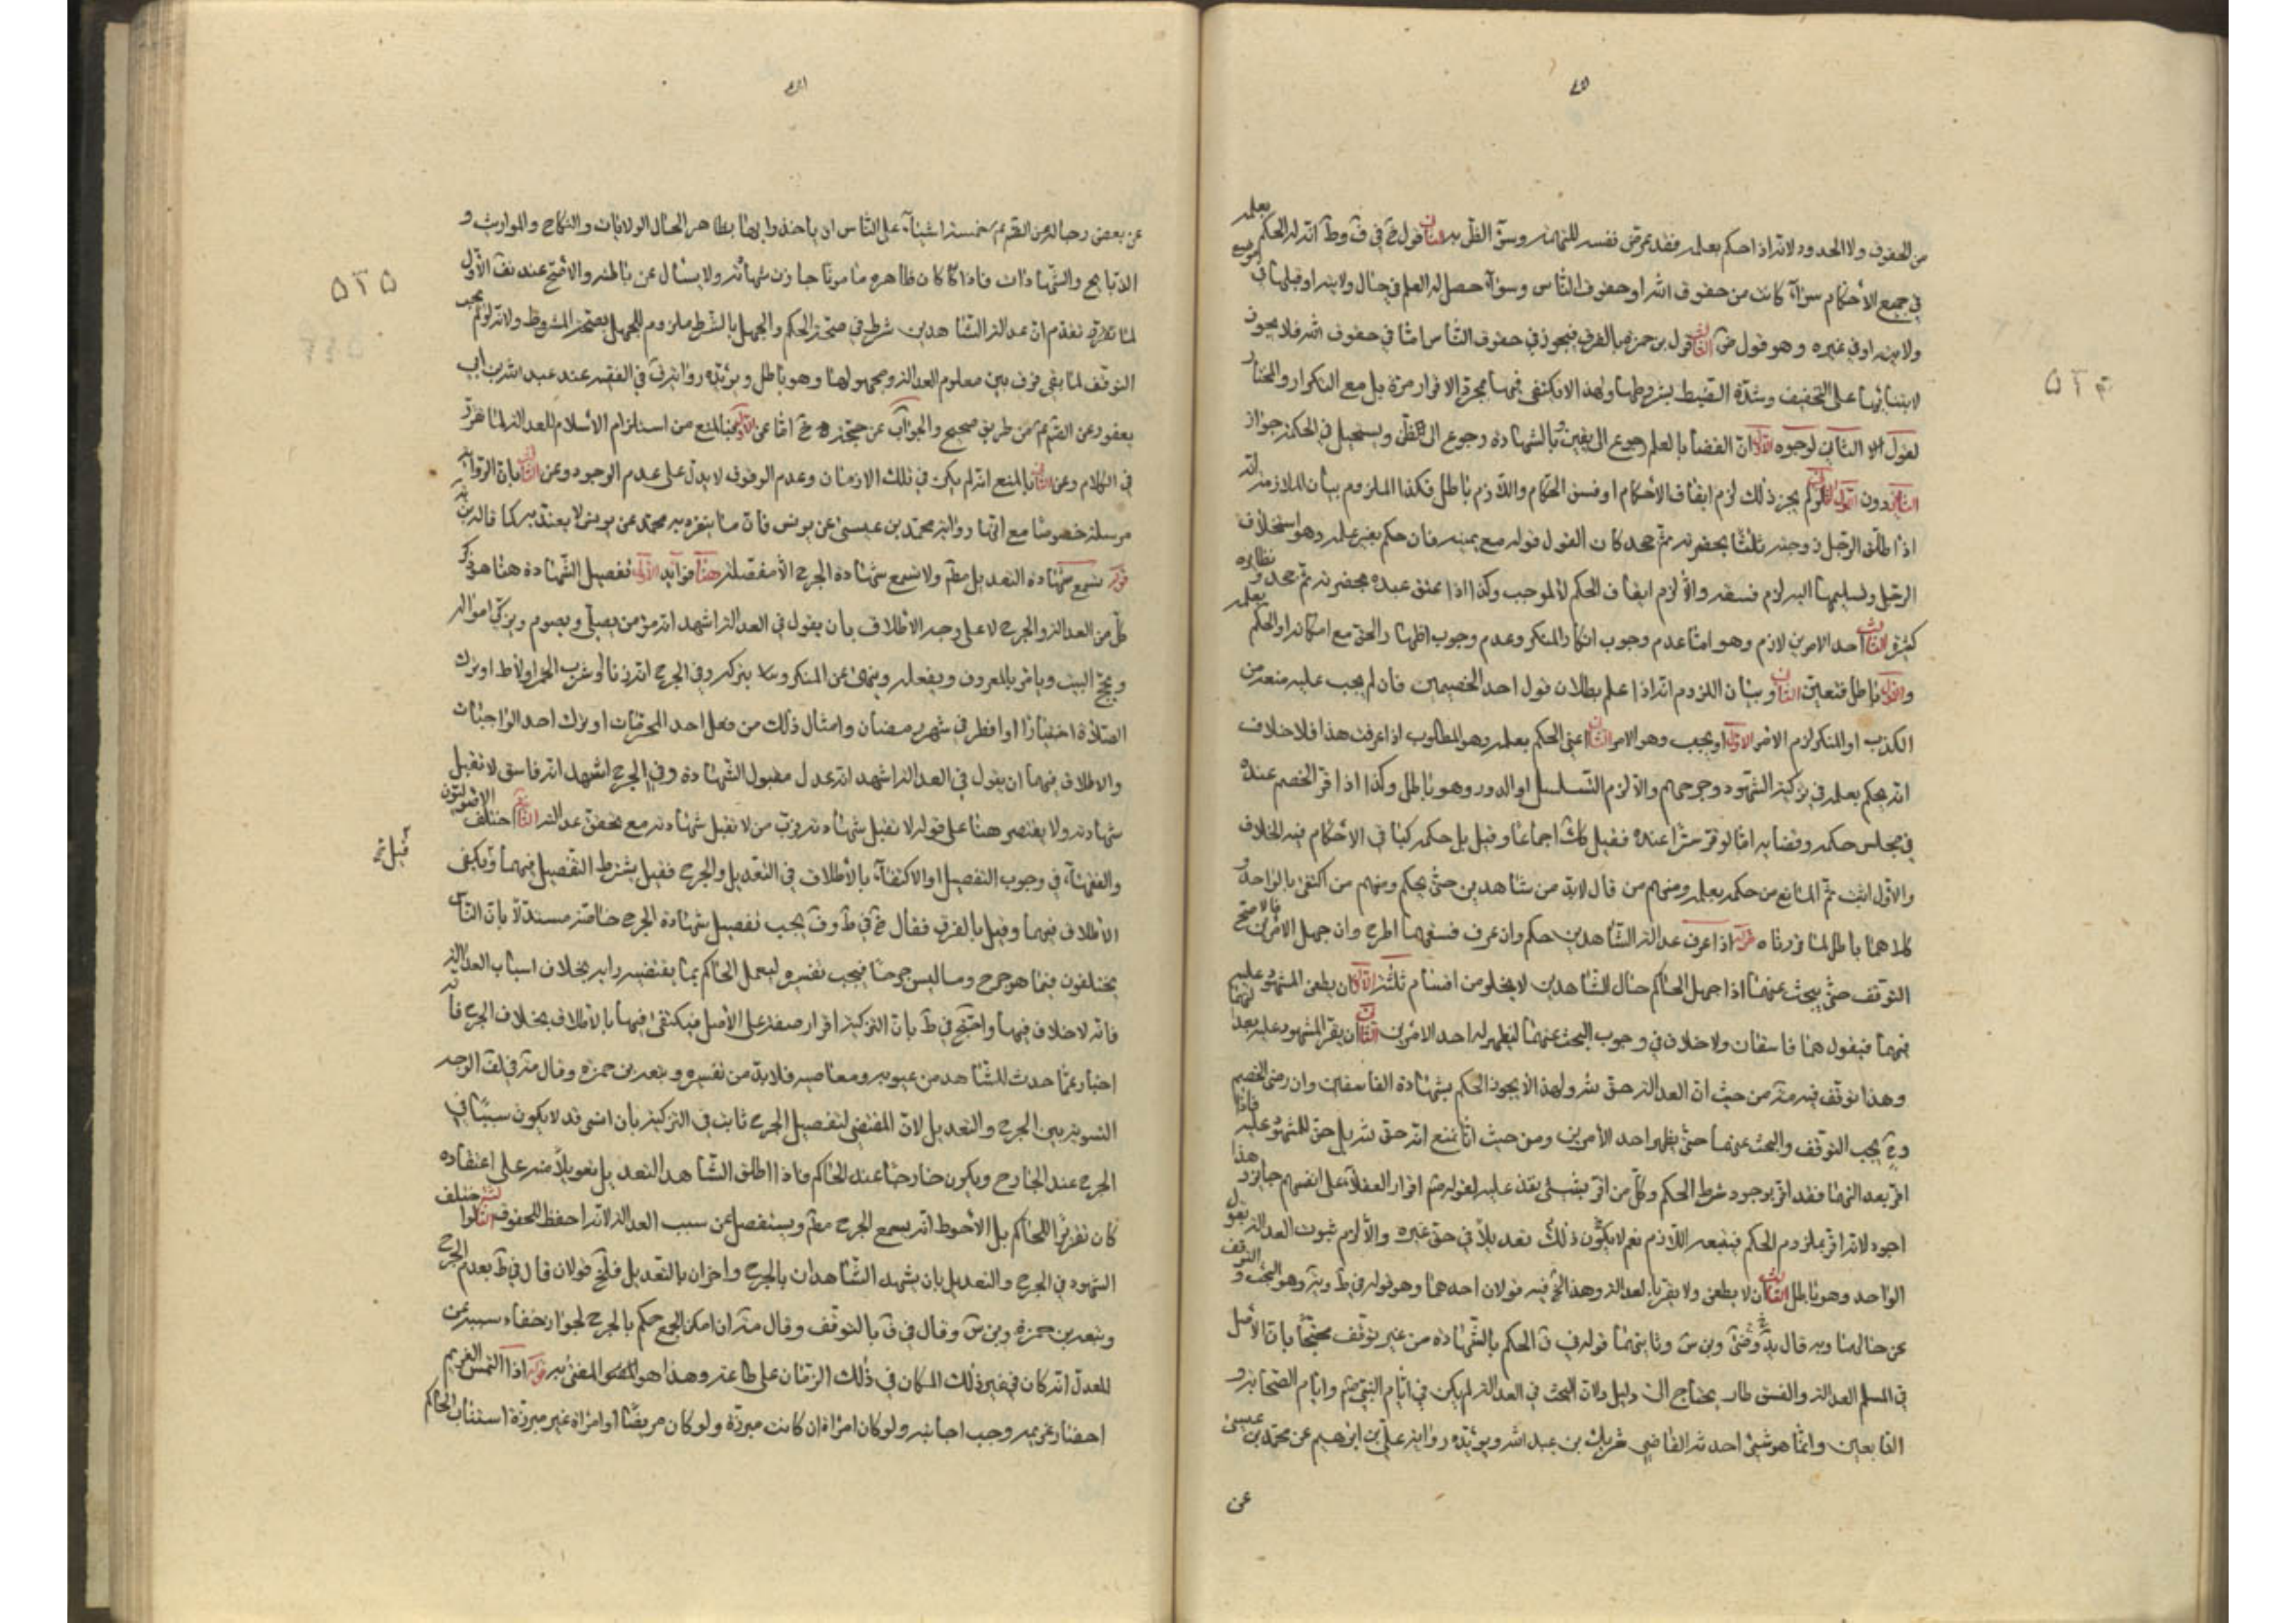 من الحقوق ولا الحدود لانه اذا حكم بعلمه فقد عرض نفسه للتهمة وسوء الظن به الثانى قول خ فى ف وط ان له الحكم بعلمه
فى جميع الأحكام سواء كانت من حقوق الله او حقوق الناس وسواء حصل له العلم فى حال ولايته او قبلها فى موضع
ولايته او فى غيره وهو قول ض الثالث قول بن حمزه بالفرق فيجوز فى حقوق الناس اما فى حقوق الله فلا يجوز
لابتنائها على التخفيف وشدة الضبط بشروطها ولهذا لا يكتفى فيها بمجرد الاقرار مرة بل مع التكرار والمختار
القول الثانى لوجوه الأول ان القضا بالعلم رجوع الى يقين وبالشهادة رجوع الى الظن ويستحيل فى الحكمة جواز
الثانى دون الأول الثانى لو لم يجز ذلك لزم ايقاف الأحكام او فسق الحكام واللازم باطل فكذا الملزوم بيان الملازمة انه
اذا طلق الرجل زوجته ثلثا بحضرته ثم جحد كان القول قوله مع يمينه فان حكم بغير علمه وهو استحلاف
الرجل وتسليمها اليه لزم فسقه والا لزم ايقاف الحكم لا لموجب وكذا اذا عتق عبده بحضرته ثم جحد ونظايره
كثيرة الثالث احد الامرين لازم وهو اما عدم وجوب انكار المنكر وعدم وجوب اظهار الحق مع امكانه او الحكم بعلمه
والاول باطل فتعين الثانى وبيان اللزوم انه اذا علم بطلان قول احد الخصمين فان لم يجب عليه منعه من
الكذب او المنكر لزم الامر الاول او يجب وهو الامر الثانى اعنى الحكم بعلمه وهو المطلوب اذا عرفت هذا فلا خلاف
انه يحكم بعلمه فى تزكية الشهود وجرحهم والا لزم التسلسل او الدور وهو باطل وكذا اذا اقر الخصم عنده
فى مجلس حكمه وقضايه اما لو اقر سرا عنده فقيل كك اجماعا وقيل بل حكمه كباقى الاحكام فيه الخلاف
والأول اثبت ثم المانع من حكمه بعلمه ومنهم من قال لابد من شاهدين حتى يحكم ومنهم من اكتفى بالواحد و
كلاهما باطل لما قررناه قوله اذا عرف عدالة الشاهدين حكم وان عرف فسقهما اطرح وان جهل الامرين فالاصح
التوقف حتى يبحث عنهما اذا جهل الحاكم حال الشاهدين لا يخلو من اقسام ثلثة الاول ان يطعن المشهود عليه
فيهما فيقول هما فاسقان ولا خلاف فى وجوب البحث عنهما ليظهر له احد الامرين الثانى ان يقر المشهود عليه بعدالتهما
وهذا توقف فيه من حيث ان العدالة حق لله ولهذا لا يجوز الحكم بشهادة الفاسقين وان رضى الخصم
يجب التوقف والبحث عنهما حتى يظهر احد الأمرين ومن حيث انا نمنع انه حق لله بل حق للمشهود عليه فاذا
اقر بعدالتهما فقد اقر بوجود شرط الحكم وكل من اقر بشىء نفذ عليه لقوله اقرار العقلاء على انفسهم جايز وهذا
اجود لانه اقر بملزوم الحكم فيتبعه اللازم نعم لا يكون ذلك تعديلا فى حق غيره والا لزم ثبوت العدالة بقول
الواحد وهو باطل الثالث ان لا يطعن ولا يقر بالعدالة وهذا فيه قولان احدهما وهو قوله فى ط ويه وهو البحث والتوقف
عن حالهما وبه قال وبن س وثانيهما قوله فى ف الحكم بالشهاده من غير توقف محتجا بان الأصل
فى المسلم العدالة والفسق طار يحتاج الى دليل ولان البحث فى العدالة لم يكن فى ايام النبى وايام الصحابة و
التابعين وانما هو شىء احدثه القاضى شريك بن عبد الله ويؤيده رواية على بن ابرهيم عن محمد بن عيسى
عن
عن بعض رجاله عن الص خمسة اشياء على الناس ان ياخذوا بها بظاهر الحال الولايات والنكاح والمواريث و
الذبايح والشهادات فاذا كان ظاهره مامونا جازت شهادته ولا يسال عن باطنه والاصح عند الأول
لما تقدم ان عدالة الشاهدين شرط فى صحة الحكم والجهل بالشرط ملزوم للجهل بصحة المشروط ولانه لو لم يجب
التوقف لما بقى فرق بين معلوم العدالة ومجهولها وهو باطل ويؤيده رواية فى الفقيه عند عبد الله بن ابى
يعفور عن الص من طريق صحيح والجواب عن حجة خ اما عن الأول فبالمنع من استلزام الأسلام للعدالة لما تقرر
فى الكلام وعن الثانى بالمنع انه لم يكن فى تلك الازمان وعدم الوقوف لا يدل على عدم الوجود وعن الثالث بان الرواية
مرسلة خصوصا مع انها رواية محمد بن عيسى عن يونس فان ما يتفرد به محمد عن يونس لا يعتد به كما قاله
قوله تسمع شهادة التعديل مطلقا ولا تسمع شهادة الجرح الا مفصلة هنا فوايد الأولى تفصيل الشهادة هنا هو ذكر
كل من العدالة والجرح لا على وجه الأطلاق بان يقول فى العدالة اشهد انه مؤمن يصلى ويصوم ويزكى امواله
ويحج البيت ويامر بالمعروف ويفعله وينهى عن المنكر ويتركه وفى الجرح انه زنا او شرب الخمر او لاط او ترك
الصلاة اختيارا او افطر فى شهر رمضان وامثال ذلك من فعل احد المحرمات او ترك احد الواجبات
والاطلاق فيهما ان يقول فى العدالة اشهد انه عدل مقبول الشهادة وفى الجرح اشهد انه فاسق لا تقبل
شهادته ولا يقتصر هنا على قوله لا تقبل شهادته فرب من لا تقبل شهادته مع تحقق عدالته الثانية اختلف الاصوليون
والفقهاء فى وجوب التفصيل او الاكتفاء بالأطلاق فى التعديل والجرح فقيل يشترط التفصيل فيهما وقيل يكفى
الأطلاق فيهما وقيل بالفرق فقال خ فى ط وف يجب تفصيل شهادة الجرح خاصة مستدلا بان الناس
يختلفون فيما هو جرح وما ليس جرحا فيجب تفسيره ليعمل الحاكم بما يقتضيه رايه بخلاف اسباب العدالة
فانه لا خلاف فيها واحتج فى ط بان التزكية اقرار صفة على الأصل فيكتفى فيها بالاطلاق بخلاف الجرح فانه
اخبار عما حدث للشاهد من عيوبه ومعاصيه فلا بد من تفسيره وتبعه بن حمزه وقال الوجه
التسوية بين الجرح والتعديل لان المقتضى لتفصيل الجرح ثابت فى التزكية بان الشىء قد لا يكون سببا فى
الجرح عند الجارح ويكون جارحا عند الحاكم فاذا اطلق الشاهد التعديل تعويلا منه على اعتقاده
كان تغريرا للحاكم بل الأحوط انه يسمع الجرح مطلقا ويستفصل عن سبب العدالة لانه احفظ للحقوق الثالثة لو اختلف
الشهود فى الجرح والتعديل بان يشهد الشاهدان بالجرح واخران بالتعديل فللخ قولان قال فى ط يقدم الجرح
وتبعه بن حمزة وبن س وقال فى ف بالتوقف وقال ان امكن الجمع حكم بالجرح لجواز خفاء سببه عن
المعدل انه كان فى غير ذلك المكان فى ذلك الزمان على طاعته وهذا هو المفتى به قوله اذا التمس الغريم
احضار غريمه وجب اجابته ولو كان امراة ان كانت مبرزة ولو كان مريضا او امراة غير مبرزة استناب الحاكم